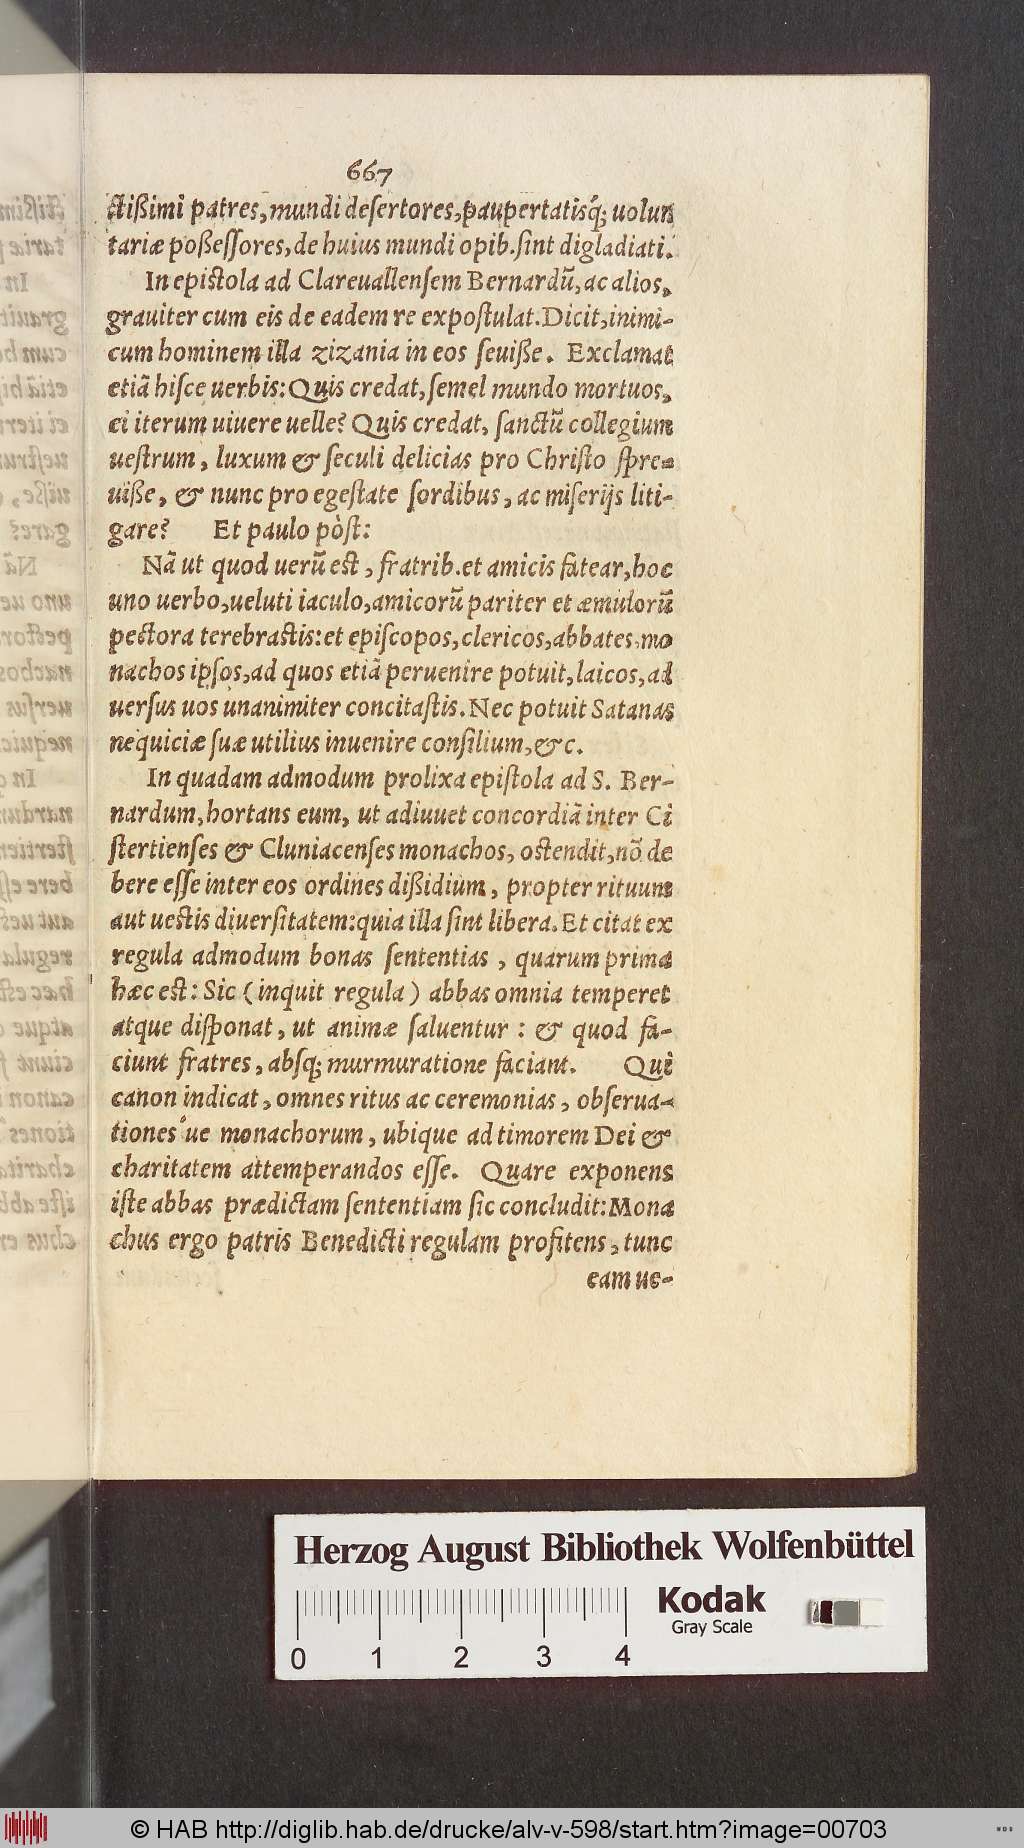 667
ctißimi patres, mundi desertores, paupertatisq́; uolun
tariæ poßessores, de huius mundi opib. sint digladiati.
In epistola ad Clareuallensem Bernardũ, ac alios,
grauiter cum eis de eadem re expostulat. Dicit, inimi-
cum hominem illa zizania in eos seuiße. Exclamat
etiã hisce uerbis: Quis credat, semel mundo mortuos,
ei iterum uiuere uelle? Quis credat, sanctũ collegium
uestrum, luxum & seculi delicias pro Christo spre-
uiße, & nunc pro egestate sordibus, ac miserijs liti-
gare? Et paulo pòst:
Nã ut quod uerũ est, fratrib. et amicis fatear, hoc
uno uerbo, ueluti iaculo, amicorũ pariter et æmulorũ
pectora terebrastis: et episcopos, clericos, abbates, mo
nachos ipsos, ad quos etiã peruenire potuit, laicos, ad
uersus uos unanimiter concitastis. Nec potuit Satanas
nequiciæ suæ utilius inuenire consilium, &c.
In quadam admodum prolixa epistola ad S. Ber-
nardum, hortans eum, ut adiuuet concordiã inter Ci
stertienses & Cluniacenses monachos, ostendit, nõ de
bere esse inter eos ordines dißidium, propter rituum
aut uestis diuersitatem: quia illa sint libera. Et citat ex
regula admodum bonas sententias, quarum prima
hæc est: Sic (inquit regula) abbas omnia temperet
atque disponat, ut animæ saluentur: & quod fa-
ciunt fratres, absq; murmuratione faciant. Qui
canon indicat, omnes ritus ac ceremonias, obserua-
tiones ́ue monachorum, ubique ad timorem Dei &
charitatem attemperandos esse. Quare exponens
iste abbas prædictam sententiam sic concludit: Mona
chus ergo patris Benedicti regulam profitens, tunc
eam ue-
Herzog August Bibliothek Wolfenbüttel
Kodak
Gray Scale
0 1 2 3 4
© HAB http://diglib.hab.de/drucke/alv-v-598/start.htm?image=00703